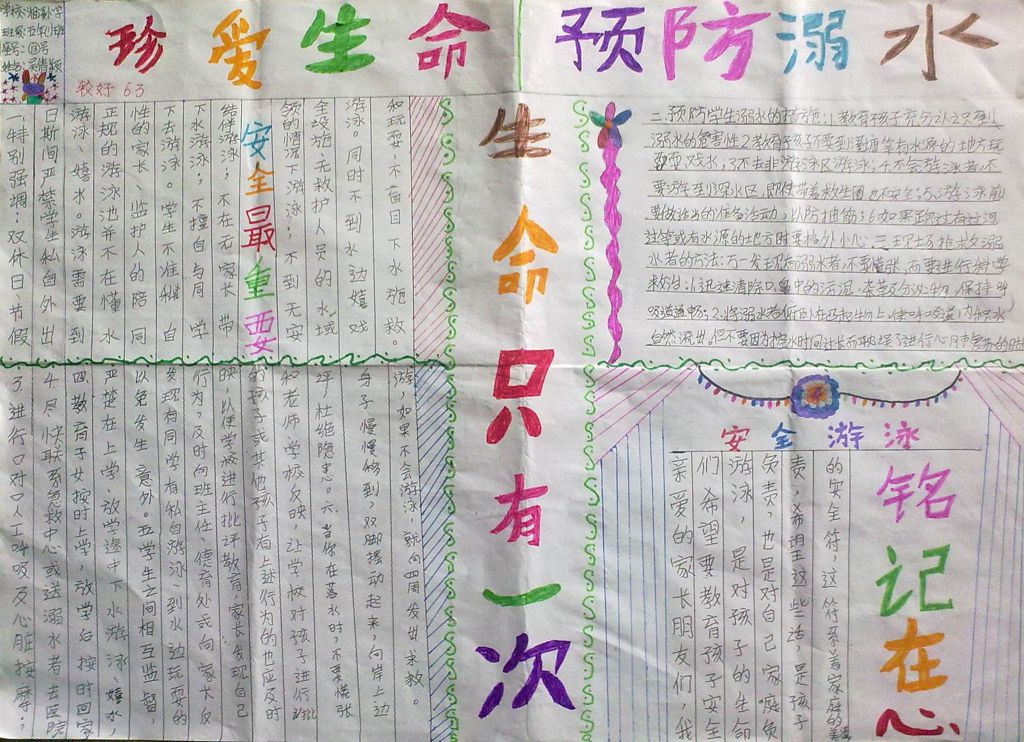 学校:湘
班级:五年
座号:⑬号
姓名:
珍爱生命
预防溺水
较好 63
安全最重要
一特别强调:双休日、节假
日期间严禁学生私自外出
游泳、嬉水。游泳需要到
正规的游泳池并不在懂水
性的家长、监护人的陪同
下去游泳。学生不准私自
下水游泳;不擅自与同学
结伴游泳;不在无家长带
领的情况下游泳;不到无安
全设施、无救护人员的水域
游泳。同时不到水边嬉戏
和玩耍、不盲目下水施救。
生命只有一次
二、预防学生溺水的措施:1.教育孩子充分认识到
溺水的危害性2.教育孩子不要到河塘等有水源的地方玩
耍、戏水;3.不去非游泳区游泳;4.不会游泳者不
要游到深水区,即使带着救生圈也不安全;5.游泳前
要做适当的准备活动,以防抽筋;6.如果路过有过河
洼等或有水源的地方时要格外小心。三
水者的方法:万一发现有溺水者,不要慌张,而要进行科学
救治:1.迅速清除口、鼻中的污泥、杂草及分泌物,保持呼
吸道通畅;2.将溺水者俯卧在
自然流出,但不要因为控水时间过长而耽误了进行心
3、进行口对口人工呼吸及心脏按摩;
4、尽快联系急救中心或送溺水者去医院
四、教育子女按时上学,放学后按时回家,
严禁在上学、放学途中下水游泳、嬉水,
以免发生意外。五、学生之间相互监督
发现有同学有私自游泳、到水边玩耍的
行为,及时向班主任、德育处或向家长反
映,以便学校进行批评教育,家长发现自己
的孩子或其他孩子有上述行为的也应及时
和老师、学校反映,让学校对孩子进行批
评,杜绝隐患。六、当你在落水时,不要慌张
身子慢慢移到,双脚摆动起来,向岸上边
游,如果不会游泳,就向四周发出求救。
安全游泳
亲爱的家长朋友们,我
们希望要教育孩子安全
游泳,是对孩子的生命
负责,也是对自己家庭负
责,希望这些话,是孩子
的安全符,这符系着家庭的美满
铭记在心